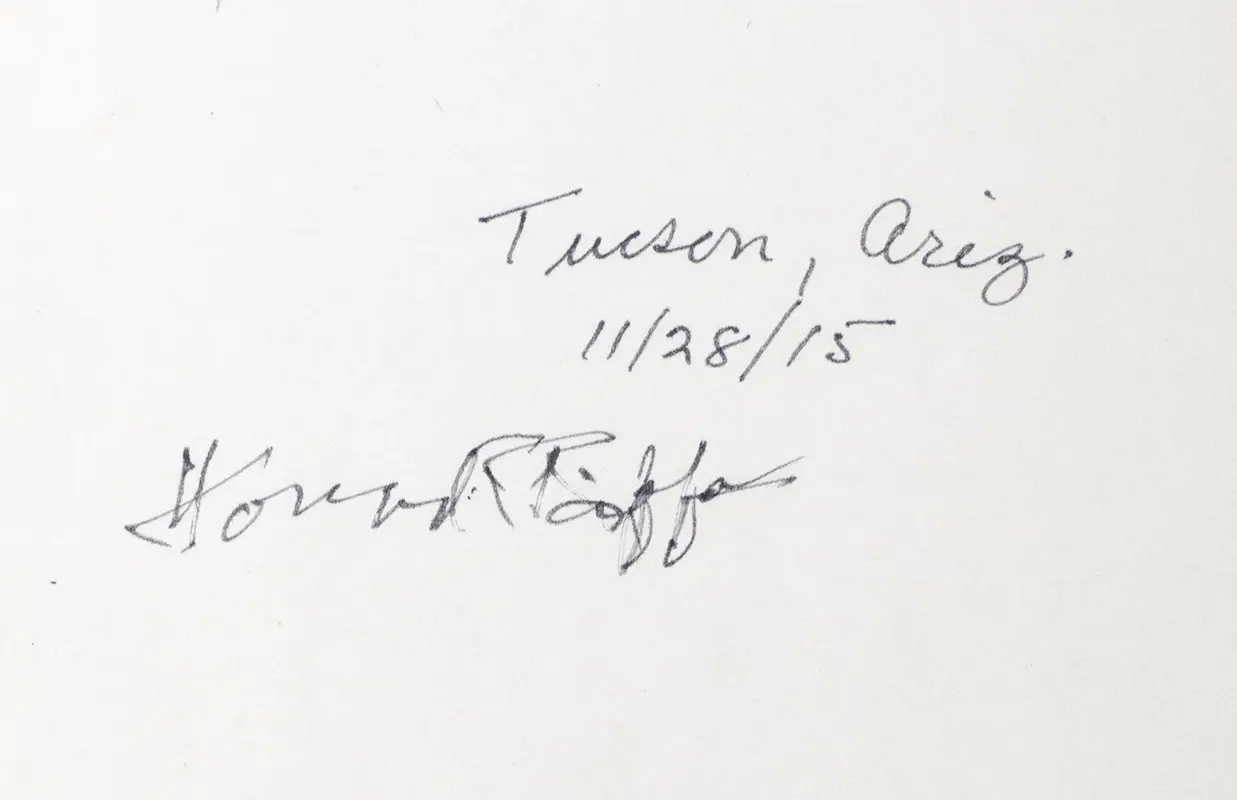 Tucson, Ariz.
11/28/15
Howard R